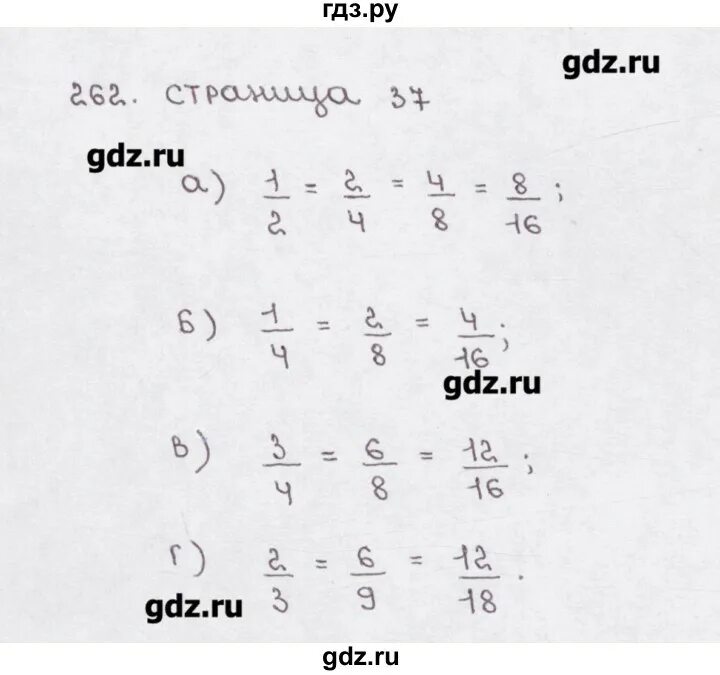 гдз.ру
gdz.ru
262. страница 37
gdz.ru
а) 1/2 = 2/4 = 4/8 = 8/16 ;
б) 1/4 = 2/8 = 4/16 ;
gdz.ru
в) 3/4 = 6/8 = 12/16 ;
г) 2/3 = 6/9 = 12/18 .
gdz.ru
gdz.ru